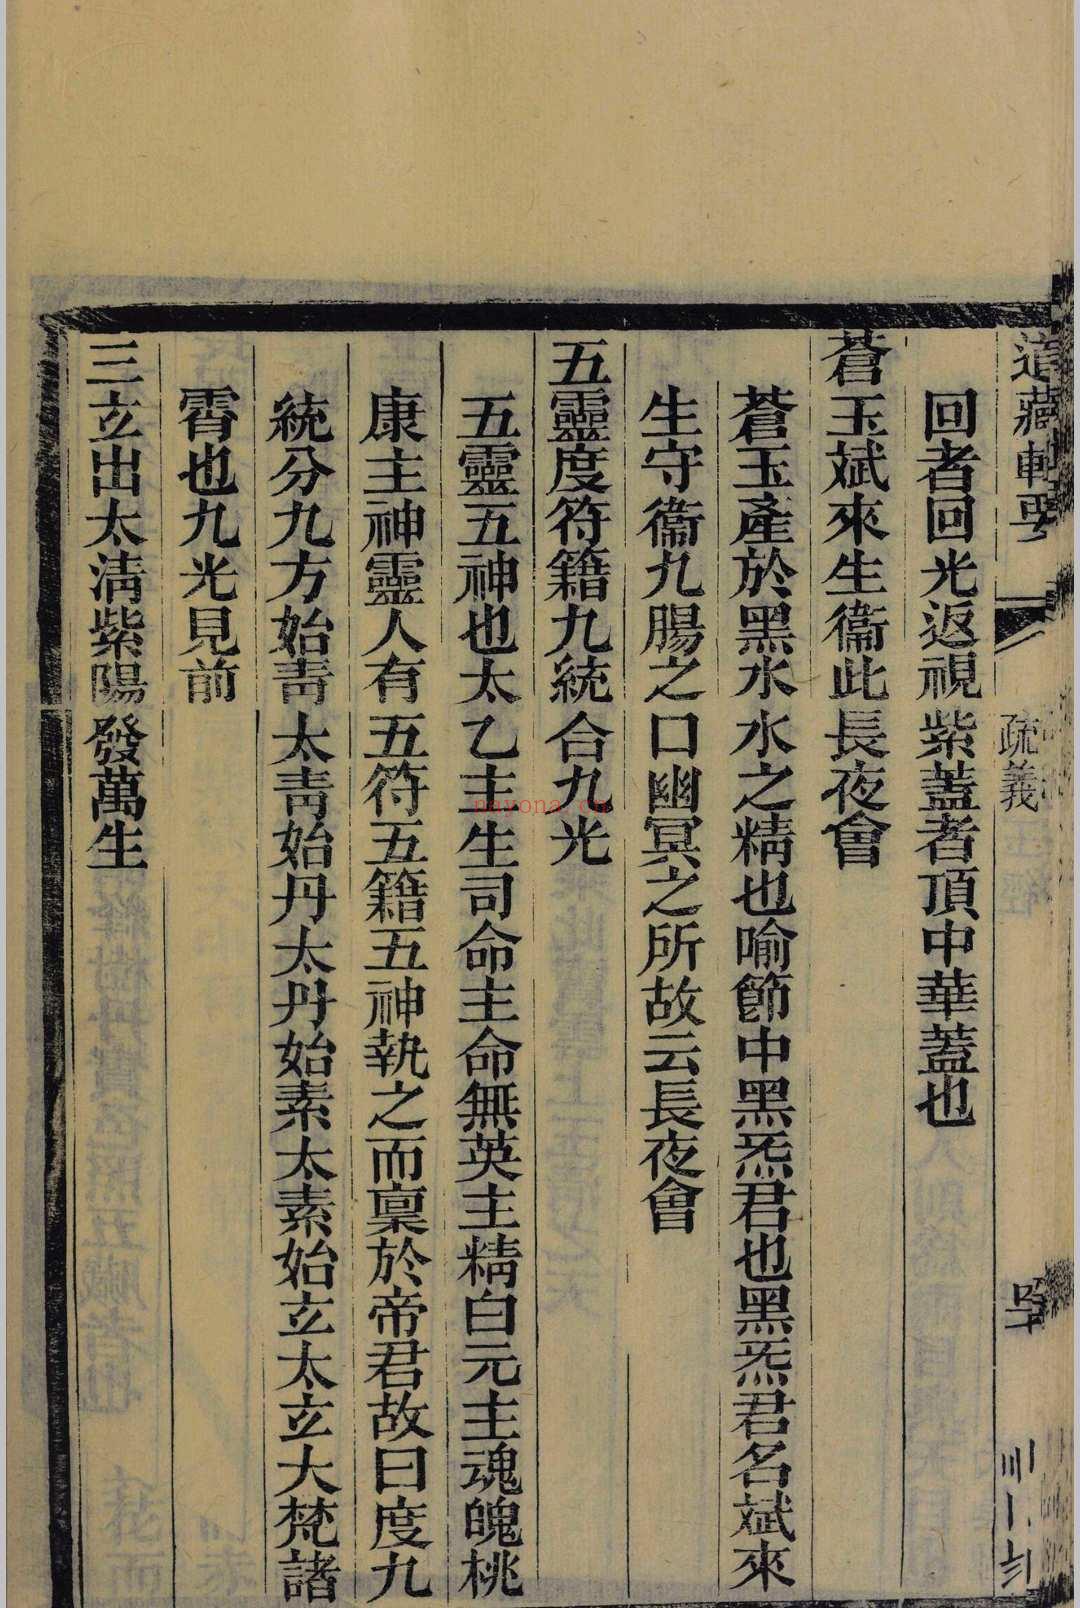 道藏輯要
疏義
回者回光返視紫蓋者頂中華蓋也
蒼玉斌來生衞此長夜會
蒼玉產於黑水水之精也喻節中黑炁君也黑炁君名斌來
生守衞九腸之口幽冥之所故云長夜會
五靈度符籍九統合九光
五靈五神也太乙主生司命主命無英主精白元主魂魄桃
康主神靈人有五符五籍五神執之而稟於帝君故曰度九
統分九方始靑太靑始丹太丹始素太素始立太立大梵諸
霄也九光見前
三立出太淸紫陽發萬生
nayona.cn